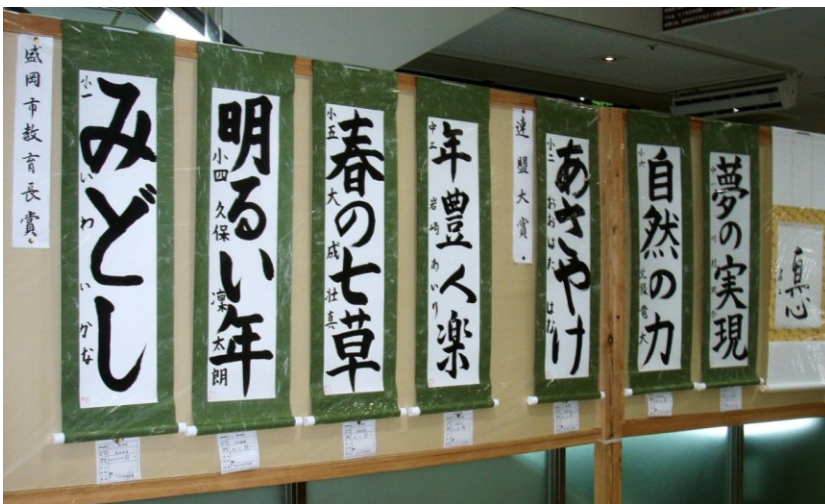 盛岡市教育長賞
みどし
小一 いわい かな
明るい年
小四 久保 凜太朗
春の七草
小五 大成 壮真
年豊人楽
中二 岩崎 あいり
連盟大賞
あさやけ
小二 おおはた はな
自然の力
小六
竜大
夢の実現
真心